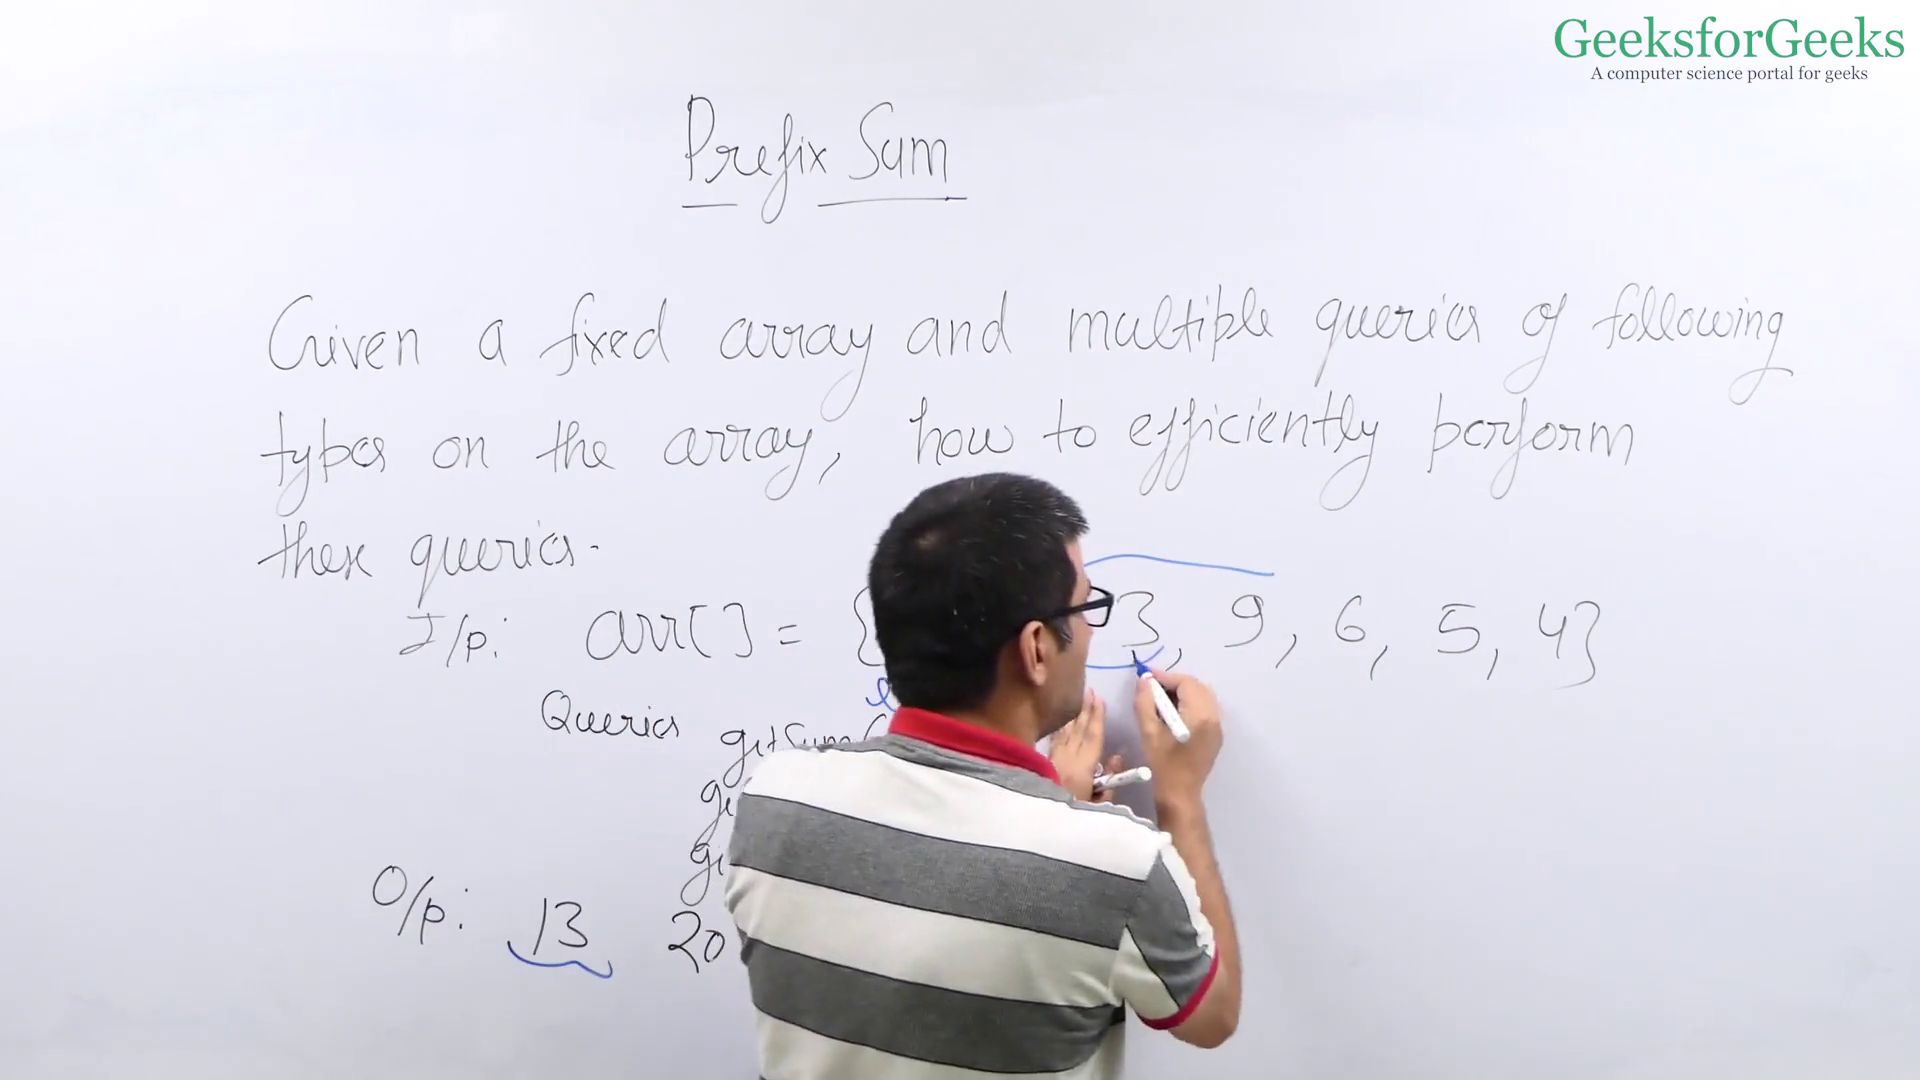 GeeksforGeeks
A computer science portal for geeks
Prefix Sum
Given a fixed array and multiple queries of following
types on the array, how to efficiently perform
these queries.
I/p: arr[] = { 3, 9, 6, 5, 4}
Queries getSum(
O/p: 13 20